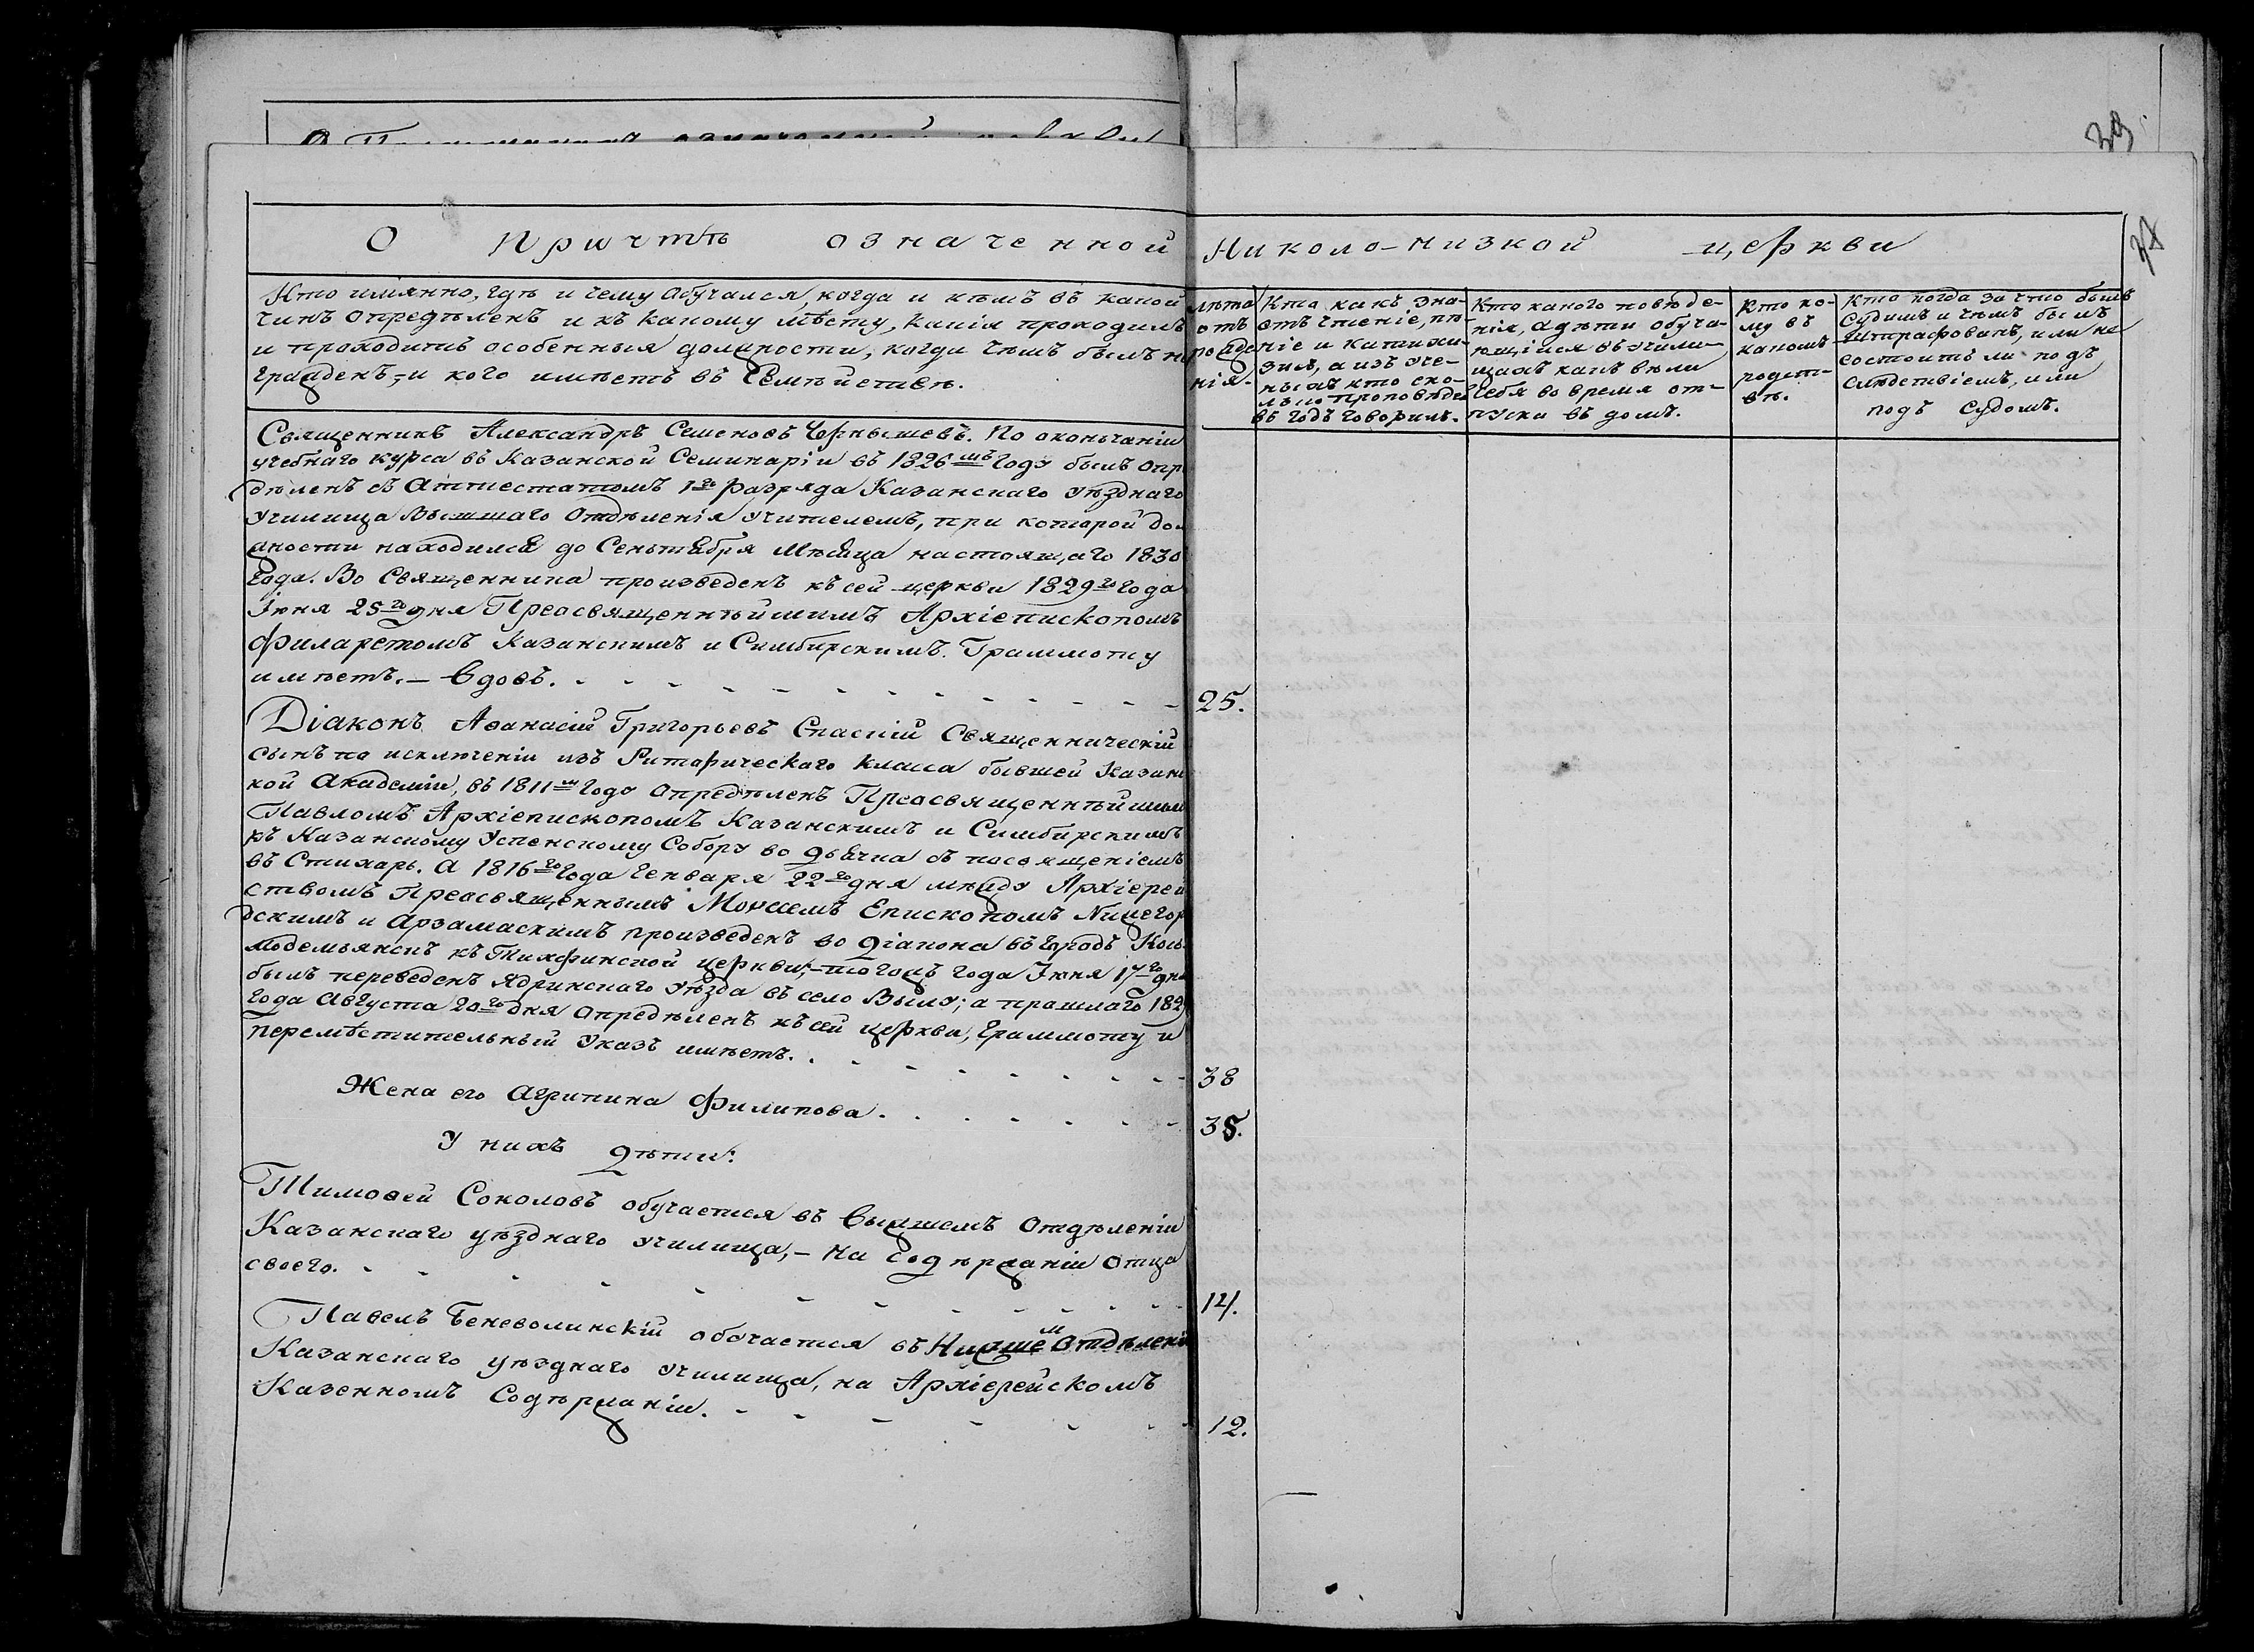 29.
О Причтѣ означенной Николо-Низкой церкви
Кто имянно, гдѣ и чему обучался, когда и кѣмъ въ какой
чинъ опредѣленъ и къ какому мѣсту, какія проходилъ
и проходитъ особенныя должности, когда чѣмъ былъ на
гражденъ,-и кого имѣетъ въ Семѣйствѣ.
лѣта
отъ
рожде
нія.
Кто какъ зна-
етъ чтеніе, пѣ-
ніе и катихи-
зисъ, а изъ уче-
ныхъ кто ско-
лько проповѣдей
въ годъ говорилъ.
Кто какого повѣде-
нія, а дѣти обуча-
ющіися въ учили-
щахъ какъ вели
себя во время от-
пуска въ домъ.
Кто ко-
му въ
какомъ
родст-
вѣ.
Кто когда за что былъ
судимъ и чѣмъ былъ
штрафованъ, или не
состоитъ ли подъ
слѣдствіемъ, или
подъ судомъ.
Священникъ Александръ Семеновъ Чернышевъ. По окончаніи
учебнаго курса въ Казанской Семинаріи въ 1826мъ году былъ опр
дѣленъ съ аттестатомъ 1го разряда Казанскаго уѣзднаго
училища Высшаго Отдѣленія учителемъ, при которой до-
жности находился до Сентября мѣсяца настоящаго 1830
года. Во Священника произведенъ къ сей церкви 1829го года
Іюня 25го дня Преосвященнѣйшимъ Архіепископомъ
Филаретомъ Казанскимъ и Симбирскимъ. Граммоту
имѣетъ.- Вдовъ. 25.
Діаконъ Аѳанасій Григорьевъ Спаскій Священническій
сынъ по исключеніи изъ Риторическаго класса бывшей Казанс
кой Академіи, въ 1811м году опредѣленъ Преосвященнѣйшим
Павломъ Архіепископомъ Казанскимъ и Симбирскимъ
къ Казанскому Успенскому Собору во дьячка съ посвященіемъ
въ Стихарь. А 1816го года Генваря 22го дня между Архіерей
ствомъ Преосвященнымъ Моисеемъ Епископомъ Нижегор
дскимъ и Арзамаскимъ произведенъ во діакона въ градъ Козь-
модемьянскъ къ Тихфинской церкви;-тогожъ года Іюня 17го дня
былъ переведенъ Ядринскаго уѣзда въ село Вылу; а прошлаго 1829
года Августа 20го дня опредѣленъ къ сей церкви, граммоту и
перемѣстительный Указъ имѣетъ. 38
Жена его Агрипина Филипова. 35.
У нихъ дѣти:
Тимоѳей Соколовъ обучается въ Высшемъ Отдѣленіи
Казанскаго уѣзднаго училища,- на содѣржаніи отца
своего. 14.
Павелъ Беневолинскій обучается въ Нисшемъ Отдѣленіи
Казанскаго уѣзднаго училища, на Архіерейскомъ
Казенномъ Содѣржаніи. 12.